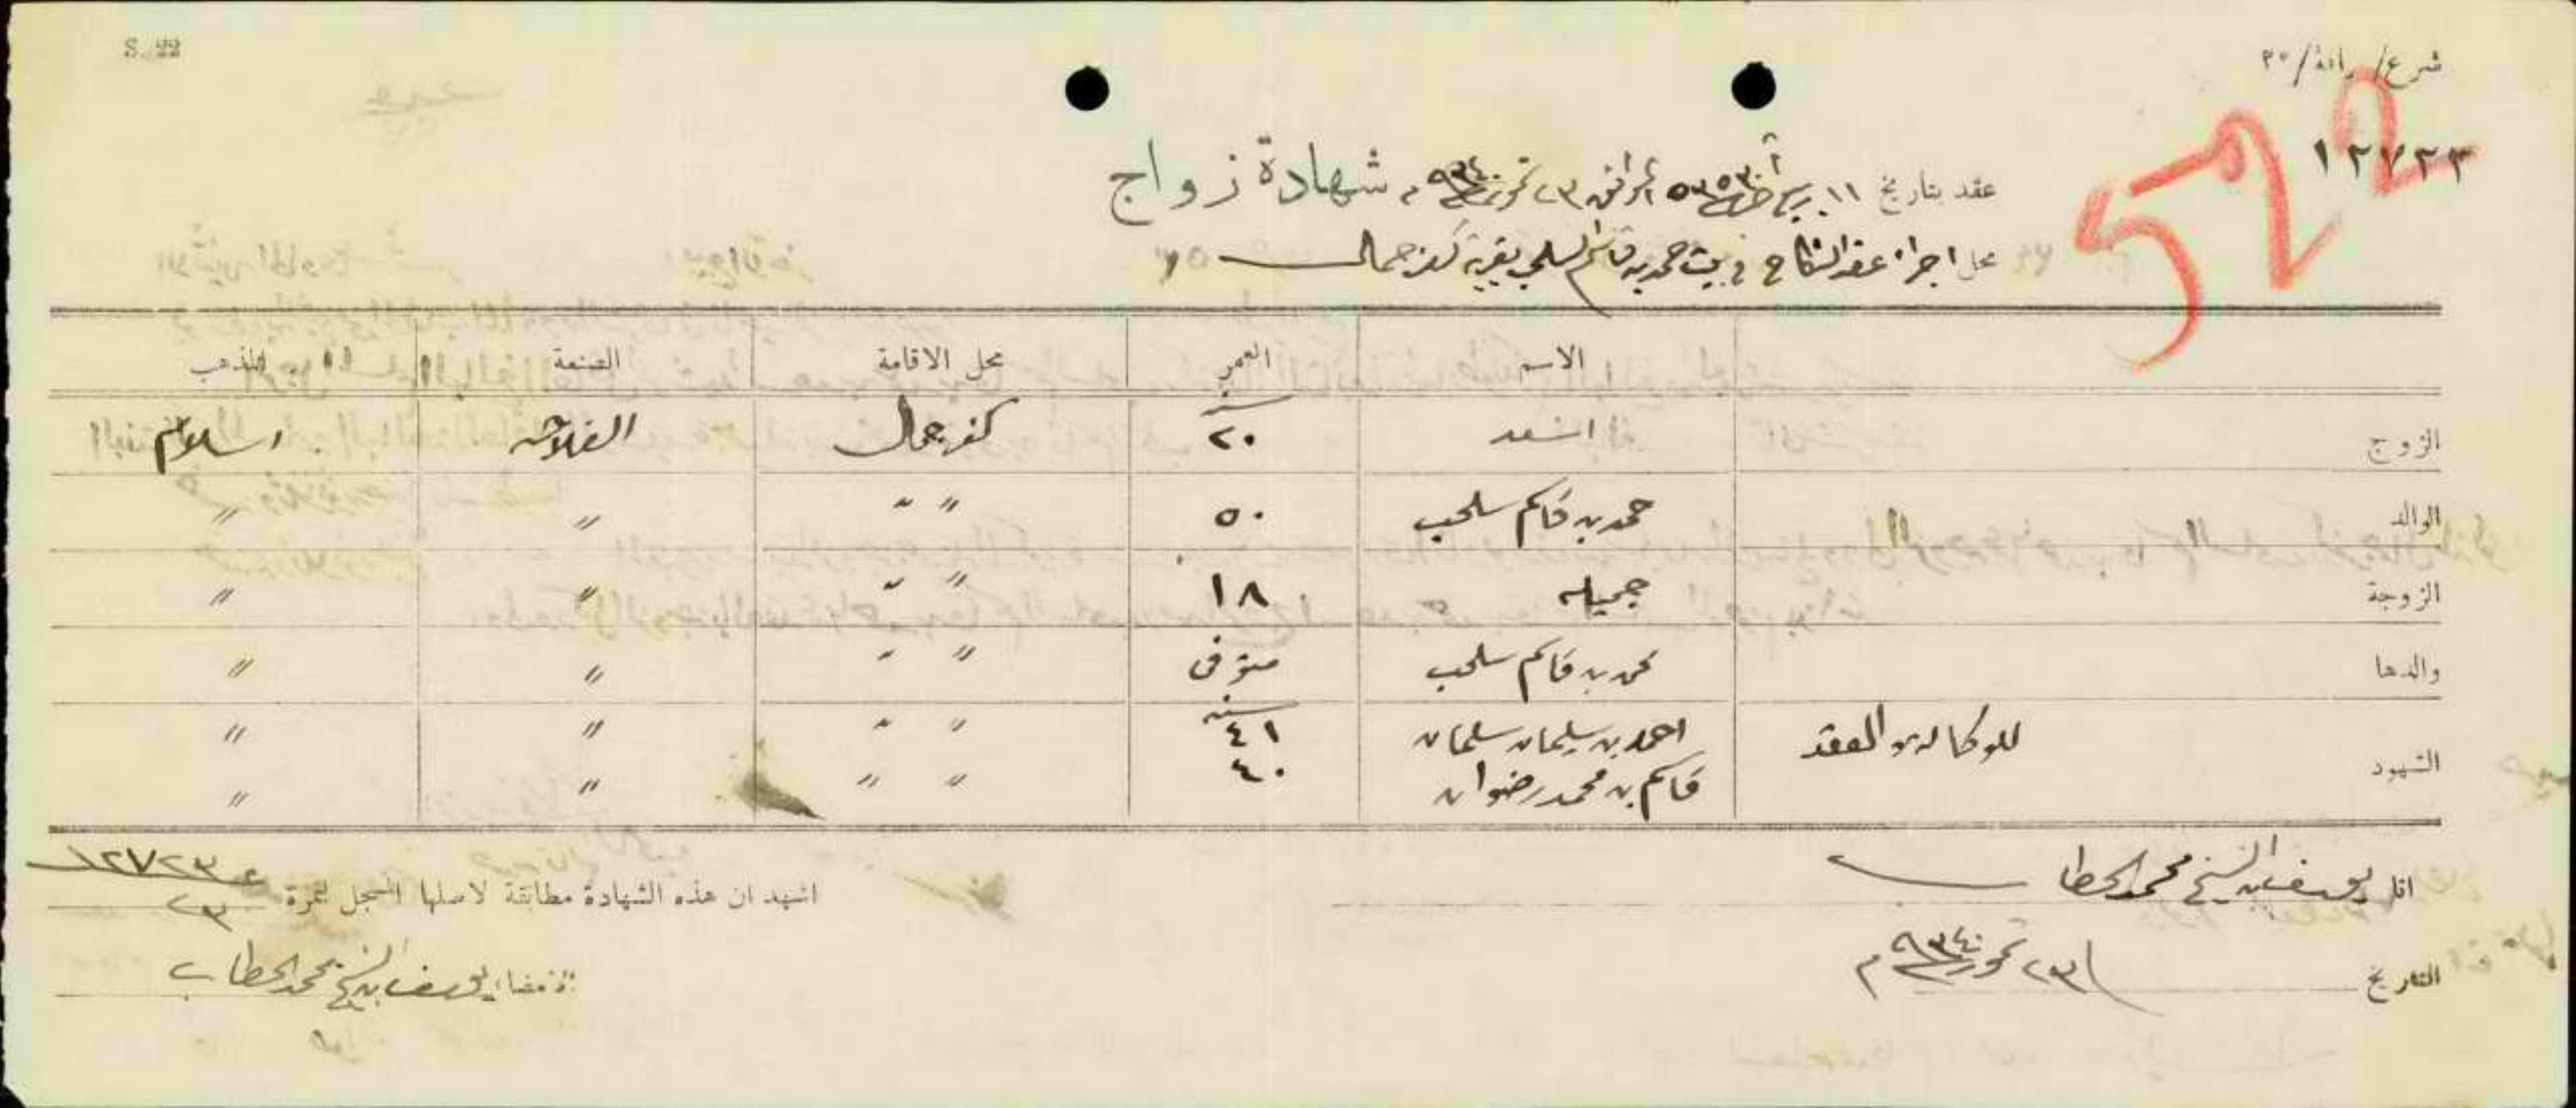 S. 22
شرع/ رانة/٣٠
١٢٧٢٣
522
عقد بتاريخ ١١ ربيع آخر ٣٥٣ الموافق ٢٣ تموز ٩٣٤ م شهادة زواج
محل اجراء عقد النكاح في بيت حمد بن قاسم السلحب بقرية كفر جمال
الاسم العمر محل الاقامة الصنعة المذهب
الزوج اسعد سنة ٢٠ كفر جمال الفلاحه اسلام
الوالد حمد بن قاسم سلحب ٥٠ 〃 〃 〃 〃
الزوجة جميله ١٨ 〃 〃 〃 〃
والدها محمد بن قاسم سلحب متوفى 〃 〃 〃 〃
الشهود للوكاله والعقد احمد بن سليمان سلمان سنه ٤١ 〃 〃 〃 〃
قاسم بن محمد رضوان ٤٠ 〃 〃 〃 〃
يوسف بن الشيخ محمد الحطاب
اشهد ان هذه الشهادة مطابقة لاصلها المسجل بنمرة ١٢٧٢٣
٢٣
التاريخ ٢٣ تموز ٩٣٤ م
الامضاء يوسف بن الشيخ محمد الحطاب